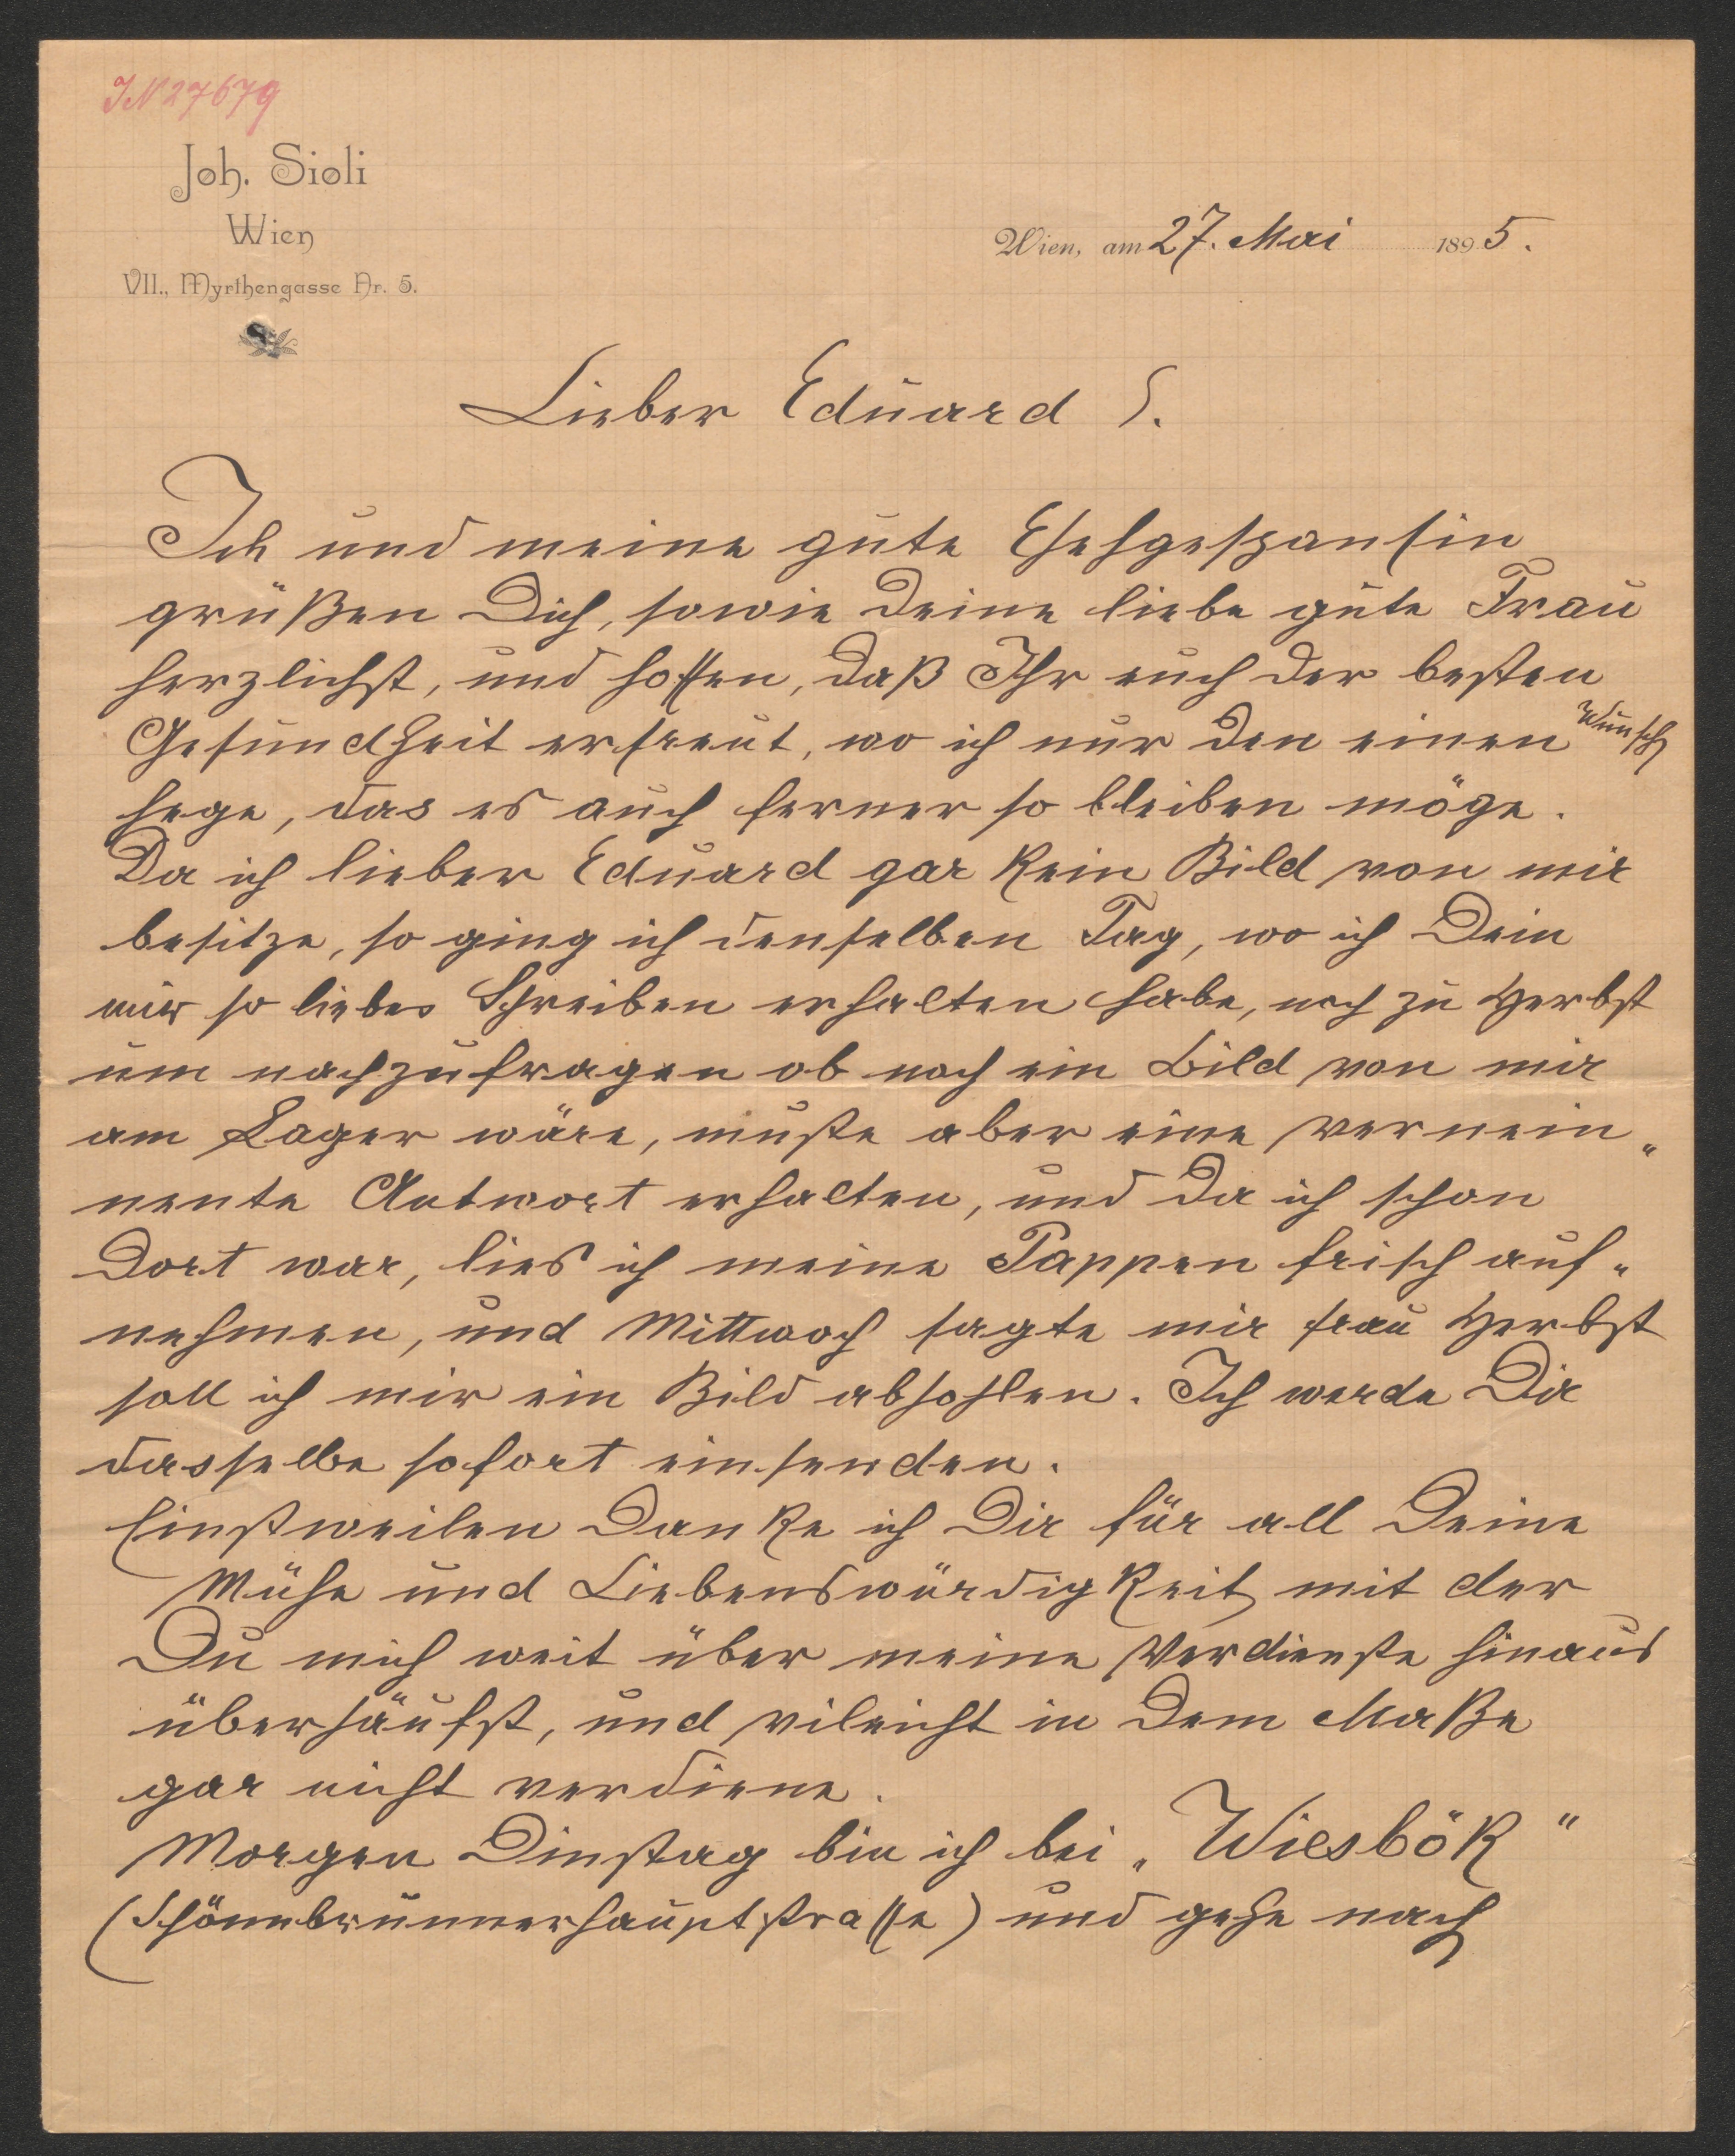 IN 27679
Joh. Sioli
Wien
VII., Myrthengasse Nr. 5.
Wien, am 27. Mai 1895.
Lieber Eduard S.
Ich und meine gute Ehehgespansin
grüßen Dich, sowie Deine liebe gute Frau
herzlichst, und hoffen, daß Ihr euch der besten
Gesundheit erfreut, wo ich nur den einen Wunsch
hege, das es auch ferner so bleiben möge.
Da ich lieber Eduard gar kein Bild von mir
besitze, so ging ich denselben Tag, wo ich Dein
mir so liebes Schreiben erhalten habe, noch zu Herbst
um nachzufragen ob noch ein Bild von mir
am Lager wäre, mußte aber eine vernein„
nente Antwort erhalten, und da ich schon
Dort war, lies ich meine Pappen frisch auf„
nehmen, und Mittwoch sagte mir frau Herbst
soll ich mir ein Bild abhohlen. Ich werde Dir
dasselbe sofort einsenden.
Einstweilen Danke ich Dir für all Deine
Mühe und Liebenswürdigkeit mit der
Du mich weit über meine Verdienste hinaus
überhäufst, und vileicht in Dem Maße
gar nicht verdiene.
Morgen Dinstag bin ich bei „Wiesbök"
(Schönnbrunnerhauptstrasse) und gehe nach